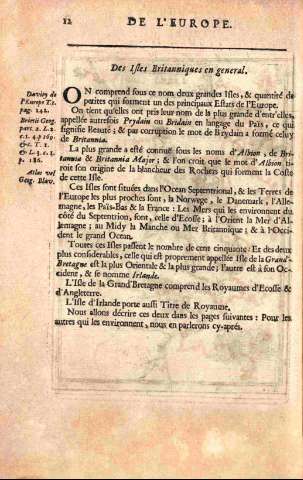 12 DE L'EUROPE.
Des Isles Britanniques en general.
Davity de
l'Europe T.2.
pag. 242.
Brietii Geog.
pars. 2. L. 2.
c. 1. 4. p 169.
& T. 2.
& L. 3. c. 2.
p. 186.
Atlas vel
Geog. Blav.
ON comprend sous ce nom deux grandes Isles, & quantité de
petites qui forment un des principaux Estats de l'Europe.
On tient qu'elles ont pris leur nom de la plus grande d'entr'elles,
appellée autrefois Prydain ou Bridain en langage du Païs, ce qui
signifie Beauté; & par corruption le mot de Brydain a formé celuy
de Britannia.
La plus grande a esté connuë sous les noms d'Albion, de Bri-
tannia & Britannia Major; & l'on croit que le mot d'Albion ti-
roit son origine de la blancheur des Rochers qui forment la Coste
de cette Isle.
Ces Isles sont situées dans l'Ocean Septentrional, & les Terres de
l'Europe les plus proches sont, la Norwege, le Danemark, l'Alle-
magne, les Païs-Bas & la France: Les Mers qui les environnent du
côté du Septentrion, sont, celle d'Ecosse; à l'Orient la Mer d'Al-
lemagne; au Midy la Manche ou Mer Britannique; & à l'Occi-
dent le grand Ocean.
Toutes ces Isles passent le nombre de cent cinquante: Et des deux
plus considerables, celle qui est proprement appellée Isle de la Grand'-
Bretagne est la plus Orientale & la plus grande; l'autre est à son Oc-
cident, & se nomme Irlande.
L'Isle de la Grand'Bretagne comprend les Royaumes d'Ecosse &
d'Angleterre.
L'Isle d'Irlande porte aussi Titre de Royaume.
Nous allons décrire ces deux dans les pages suivantes: Pour les
autres qui les environnent, nous en parlerons cy-aprés.